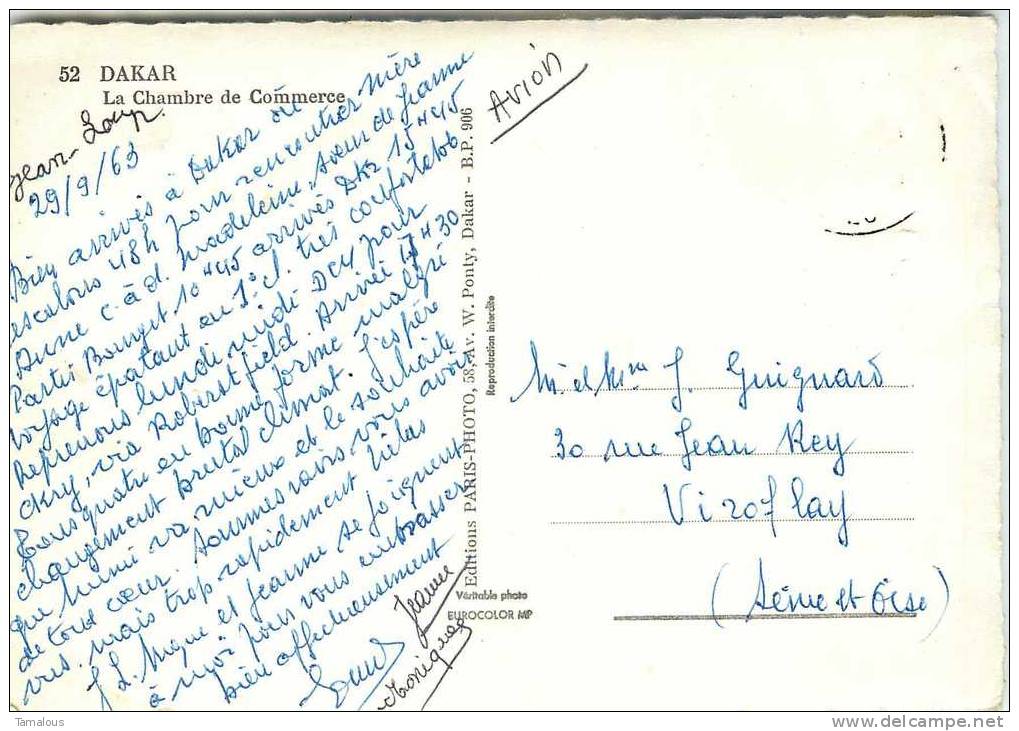 52 DAKAR
La Chambre de Commerce
Jean-Loup.
29/9/63
Bien arrivés à Dakar où
escalons 48h pour rencontrer Mère
Anne c-à-d. Madeleine, sœur de Jeanne
Partis Bourget 10H45 arrivés DKR 15H45
voyage épatant en 1° cl. très confortable
Reprenons lundi midi DC4 pour
CKRY, via Robertsfield. Arrivée 17H30
Tous quatre en bonne forme malgré
changement brutal climat. J'espère
que Mimi va mieux et le souhaite
de tout cœur. Sommes ravis vous avoir
vus. mais trop rapidement hélas
J.L. Nique et Jeanne se joignent
à moi pour vous embrasser
bien affectueusement
Jeanne
Monique
Avion
Editions PARIS-PHOTO, 58, Av. W. Ponty, Dakar - B.P. 906
Reproduction interdite
Véritable photo
EUROCOLOR MP
M et Mme J. Guignard
30 rue Jean Rey
Viroflay
(Seine et Oise)
Tamalous
www.delcampe.net